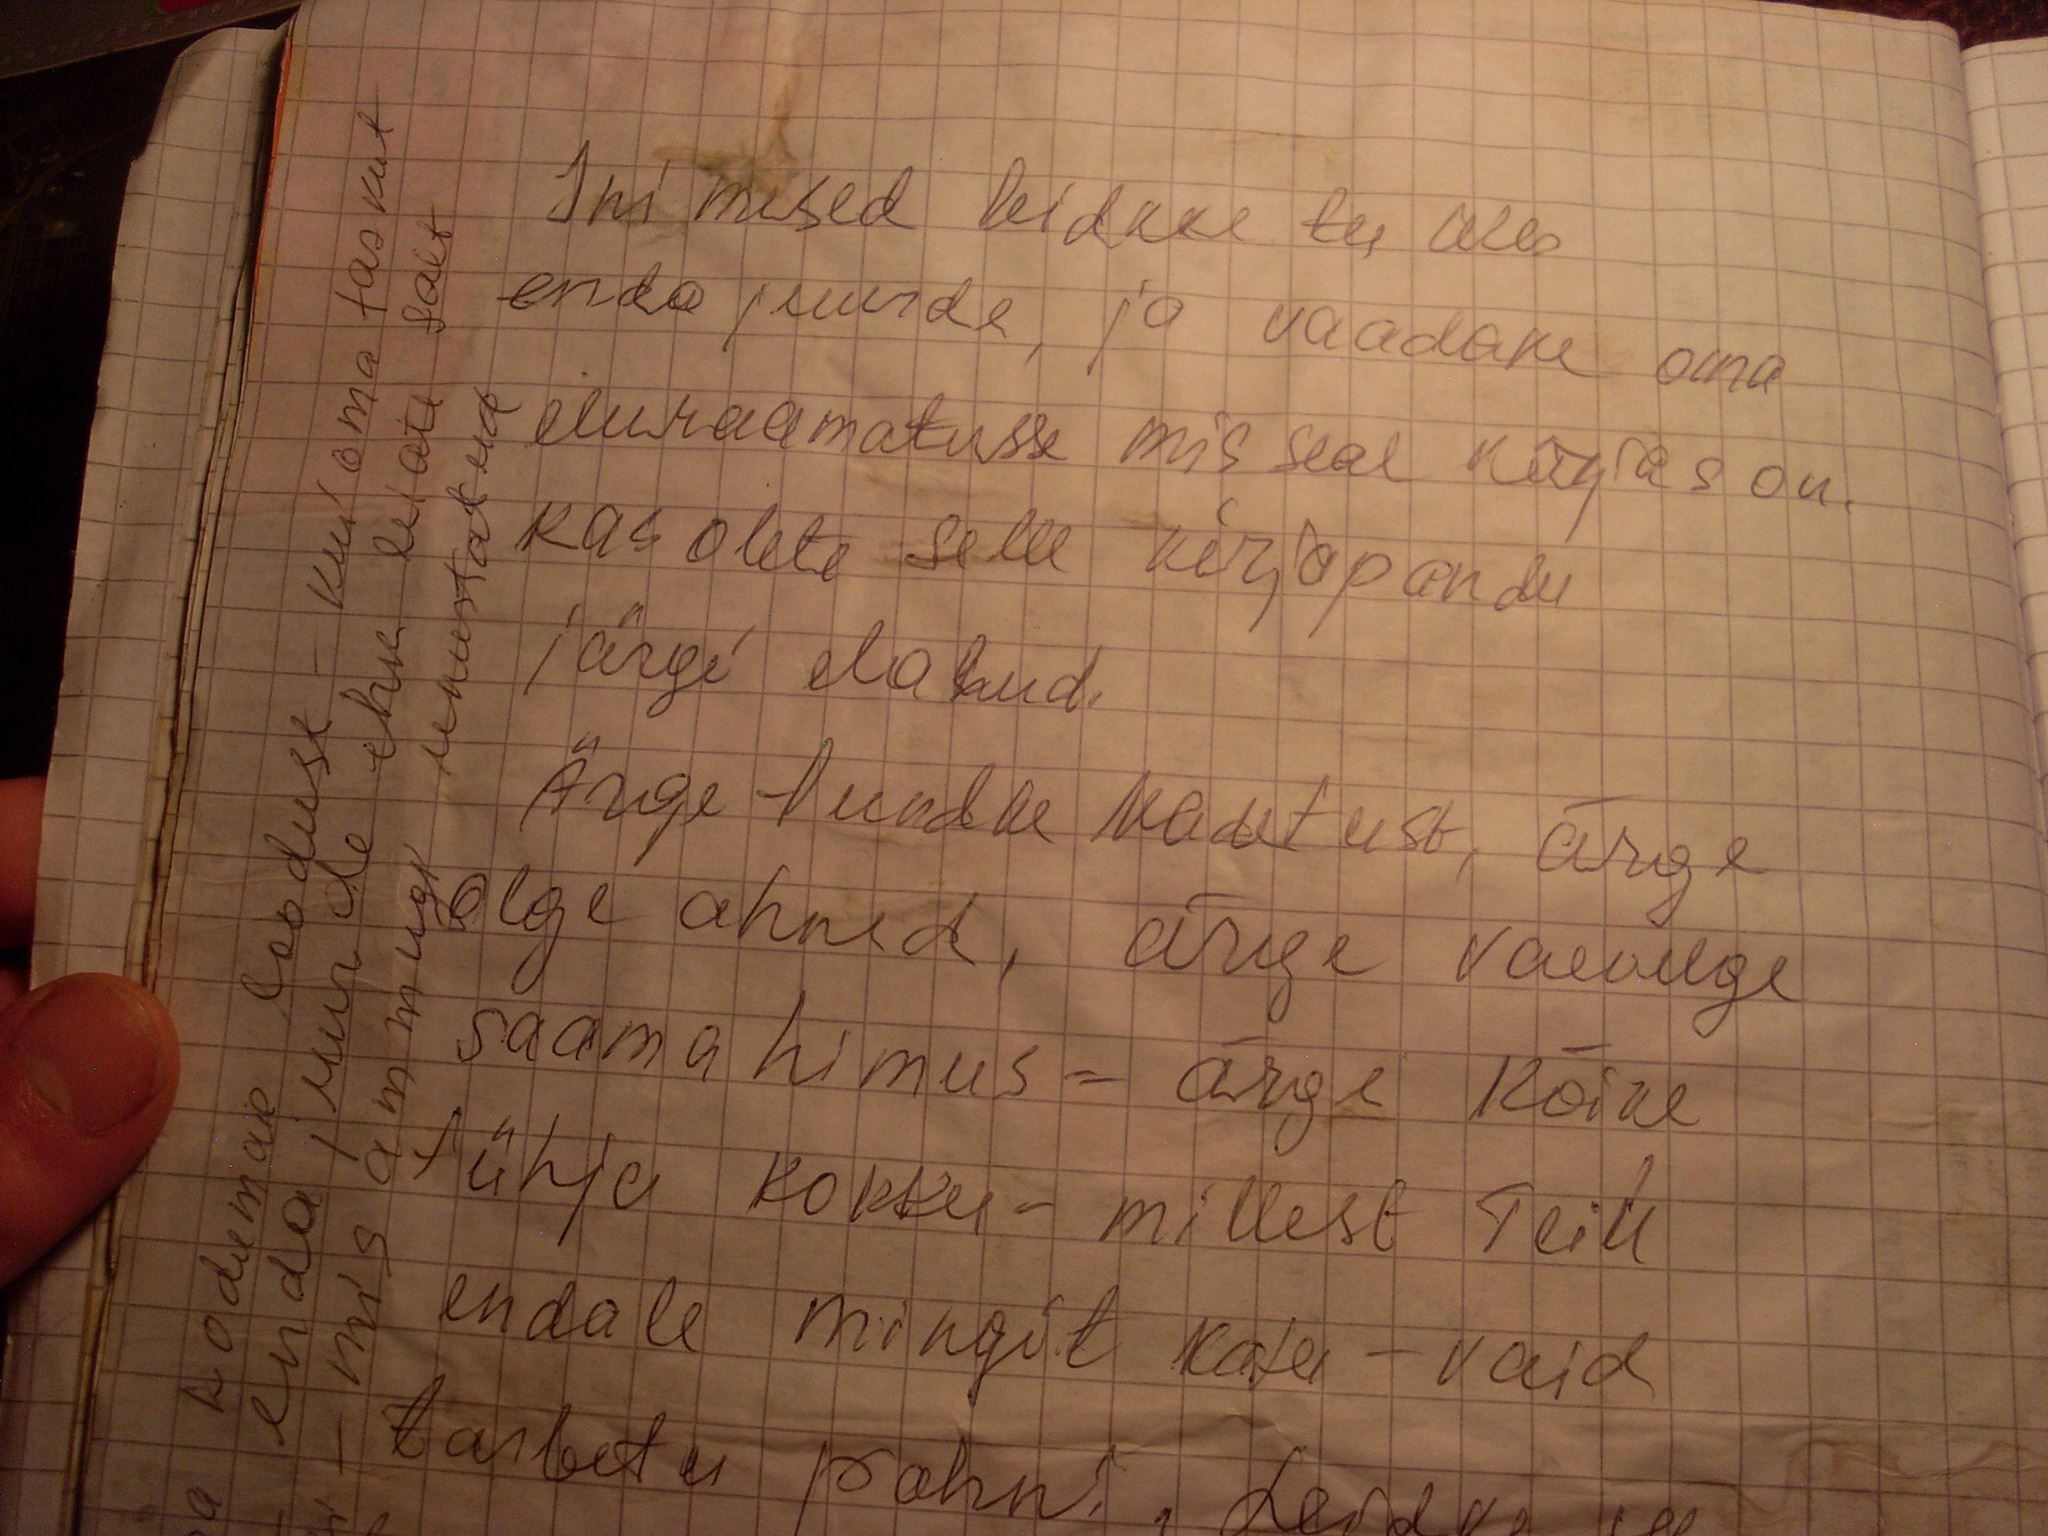 Inimesed leidke tee üles
enda juurde, ja vaadake oma
eluraamatusse mis seal kirjas on.
Kas olete selle kirjapandu
järgi elanud.
Ärge tundke kadetust, ärge
olge ahned, ärge vaevelge
saamahimus - ärge kõike
tühja kokku - millest Teile
endale mingit kasu - vaid
tarbetu prahni. Leidke
kodumaie loodusse - kui oma taskut
enda juurde ehk leiate sealt
- mis ammugi unustatud